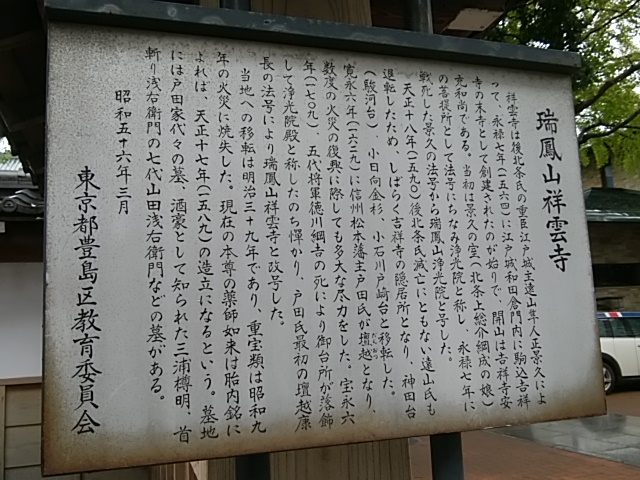 瑞鳳山祥雲寺
祥雲寺は後北条氏の重臣江戸城主遠山隼人正景久によ
って、永禄七年(一五六四)に江戸城和田倉門内に駒込吉祥
寺の末寺として創建されたのが始りで、開山は吉祥寺安
充和尚である。当初は景久の室(北条上総介綱成の娘)
の菩提所として法号にちなみ浄光院と称し、永禄七年に
戦死した景久の法号から瑞鳳山浄光院と号した。
天正十八年(一五九〇)後北条氏滅亡にともない遠山氏も
退転したため、しばらく吉祥寺の隠居所となり、神田台
(駿河台)小日向金杉、小石川戸崎台と移転した。
寛永六年(一六二九)に信州松本藩主戸田氏が壇越となり、
数度の火災の復興に際しても多大な尽力をした。宝永六
年(一七〇九)、五代将軍徳川綱吉の死により御台所が落飾
して浄光院殿と称したのち憚かり、戸田氏最初の壇越康
長の法号により瑞鳳山祥雲寺と改号した。
当地への移転は明治三十九年であり、重宝類は昭和九
年の火災に焼失した。現在の本尊の薬師如来は胎内銘に
よれば、天正十七年(一五八九)の造立になるという。墓地
には戸田家代々の墓、酒豪として知られた三浦樽明、首
斬り浅右衛門の七代山田浅右衛門などの墓がある。
昭和五十六年三月
東京都豊島区教育委員会